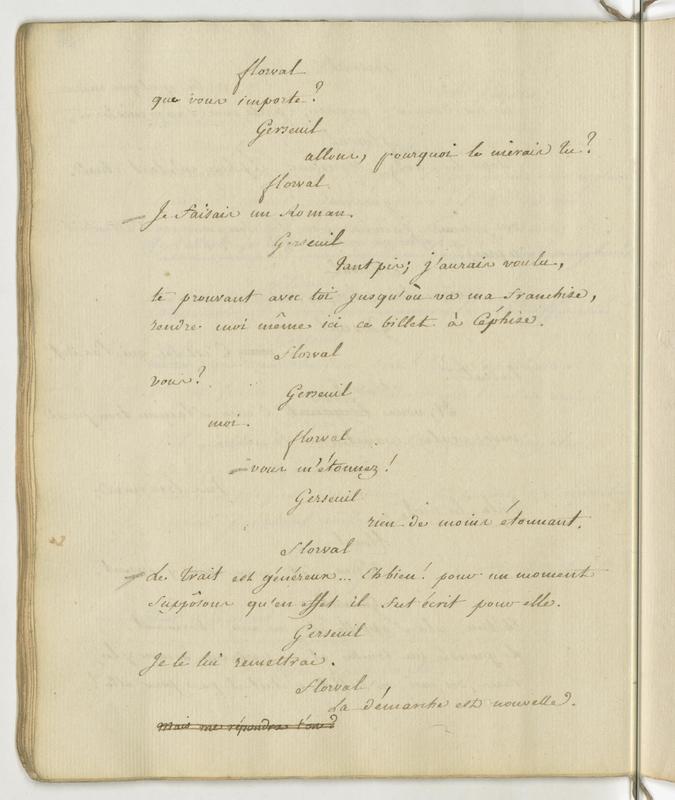 florval
que vous importe?
Gerseuil
allons, pourquoi le nierais tu?
florval
Je faisais un Roman.
Gerseuil
tant pis; j'aurais voulu,
te prouvant avec toi jusqu'où va ma franchise,
rendre moi même ici ce billet à Céphise.
florval
vous?
Gerseuil
moi.
florval
vous m'étonnez!
Gerseuil
rien de moins étonnant.
florval
Le trait est généreux... Eh bien! pour un moment
supposons qu'en effet il fut écrit pour elle.
Gerseuil
Je le lui remettrai.
florval
La démarche est nouvelle.
Mais me répondra t'on